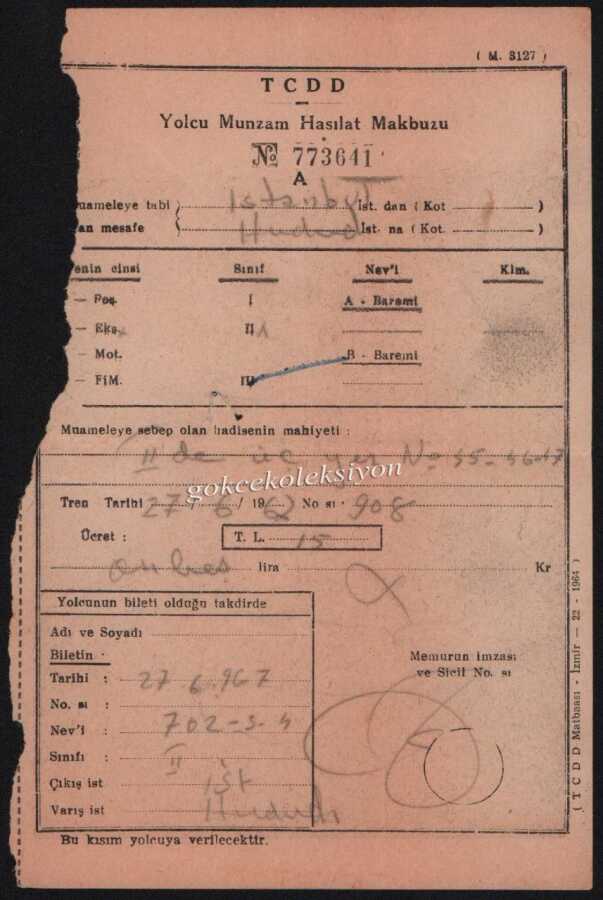 ( M. 3127 )
TCDD
Yolcu Munzam Hasılat Makbuzu
№ 773641
A
uameleye tabi ) İstanbul İst. dan ( Kot )
an mesafe ( Hudud İst. na ( Kot. )
enin cinsi Sınıf Nev'i Klm.
— Pos. I A - Baremi
— Eks. II
— Mot. B - Baremi
— FiM. III
Muameleye sebep olan hadisenin mahiyeti :
II de üç yer No 45-46-47
gokcekoleksiyon
Tren Tarihi 27 / 6 / 1967 No sı · 908
Ücret : T. L. 15
onbeş lira Kr
Yolcunun bileti olduğu takdirde
Adı ve Soyadı
Biletin ·
Tarihi : 27.6.967
No. sı : 702-3-4
Nev'i :
Sınıfı : II
Çıkış ist İst
Varış ist Hudud
Memurun imzası
ve Sicil No. sı
( TCDD Matbaası - İzmir — 22 - 1964 )
Bu kısım yolcuya verilecektir.